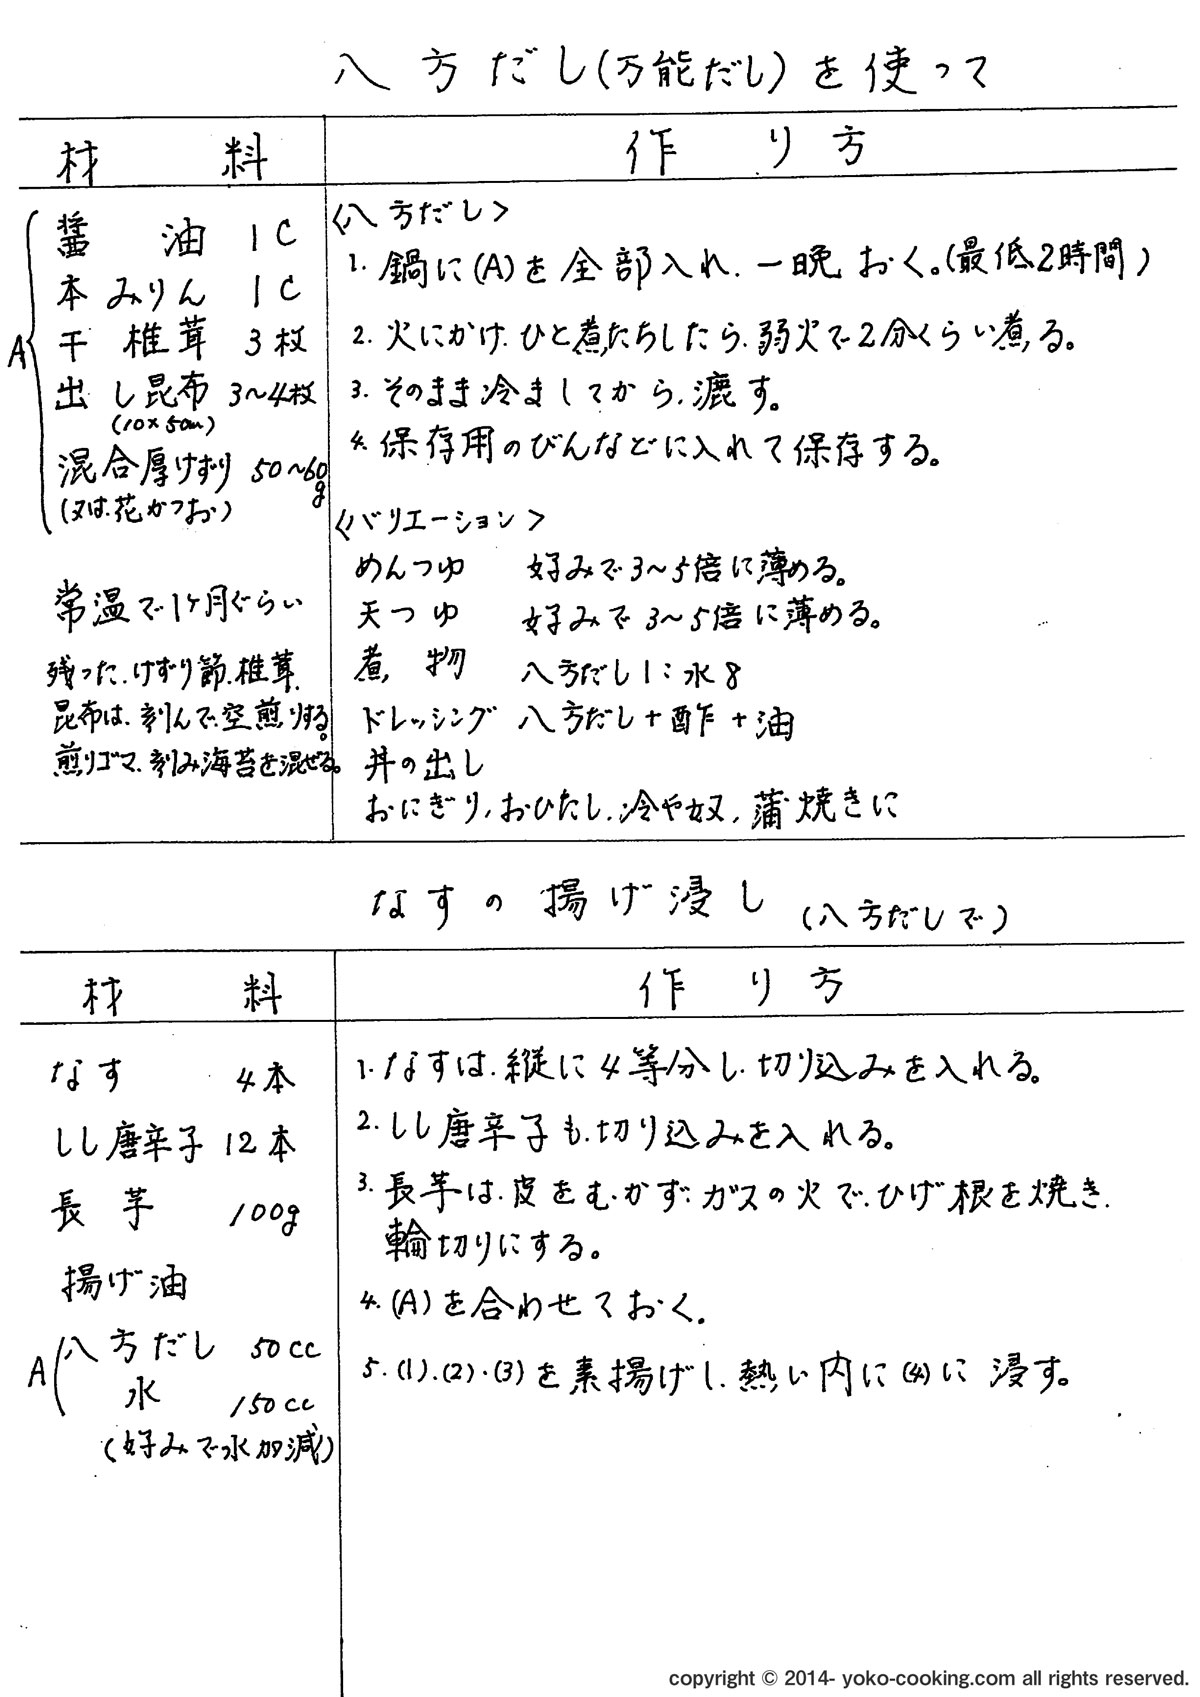 八方だし(万能だし)を使って
材料
作り方
A
醤油 1C
本みりん 1C
干椎茸 3枚
出し昆布 3〜4枚
(10×5cm)
混合厚けずり 50〜60g
(又は、花かつお)
常温で1ヶ月ぐらい
残った、けずり節、椎茸、
昆布は、刻んで、空煎りする。
煎りゴマ、刻み海苔を混ぜる。
〈八方だし〉
1. 鍋に(A)を全部入れ、一晩おく。(最低2時間)
2. 火にかけ、ひと煮たちしたら、弱火で2分くらい煮る。
3. そのまま冷ましてから、漉す。
4. 保存用のびんなどに入れて保存する。
〈バリエーション〉
めんつゆ 好みで3〜5倍に薄める。
天つゆ 好みで3〜5倍に薄める。
煮物 八方だし1:水8
ドレッシング 八方だし+酢+油
丼の出し
おにぎり、おひたし、冷や奴、蒲焼きに
なすの揚げ浸し (八方だしで)
材料
作り方
なす 4本
しし唐辛子 12本
長芋 100g
揚げ油
A
八方だし 50cc
水 150cc
(好みで水加減)
1. なすは、縦に4等分し、切り込みを入れる。
2. しし唐辛子も、切り込みを入れる。
3. 長芋は、皮をむかず、ガスの火で、ひげ根を焼き、
輪切りにする。
4. (A)を合わせておく。
5. (1)、(2)・(3)を素揚げし、熱い内に(4)に浸す。
copyright © 2014- yoko-cooking.com all rights reserved.